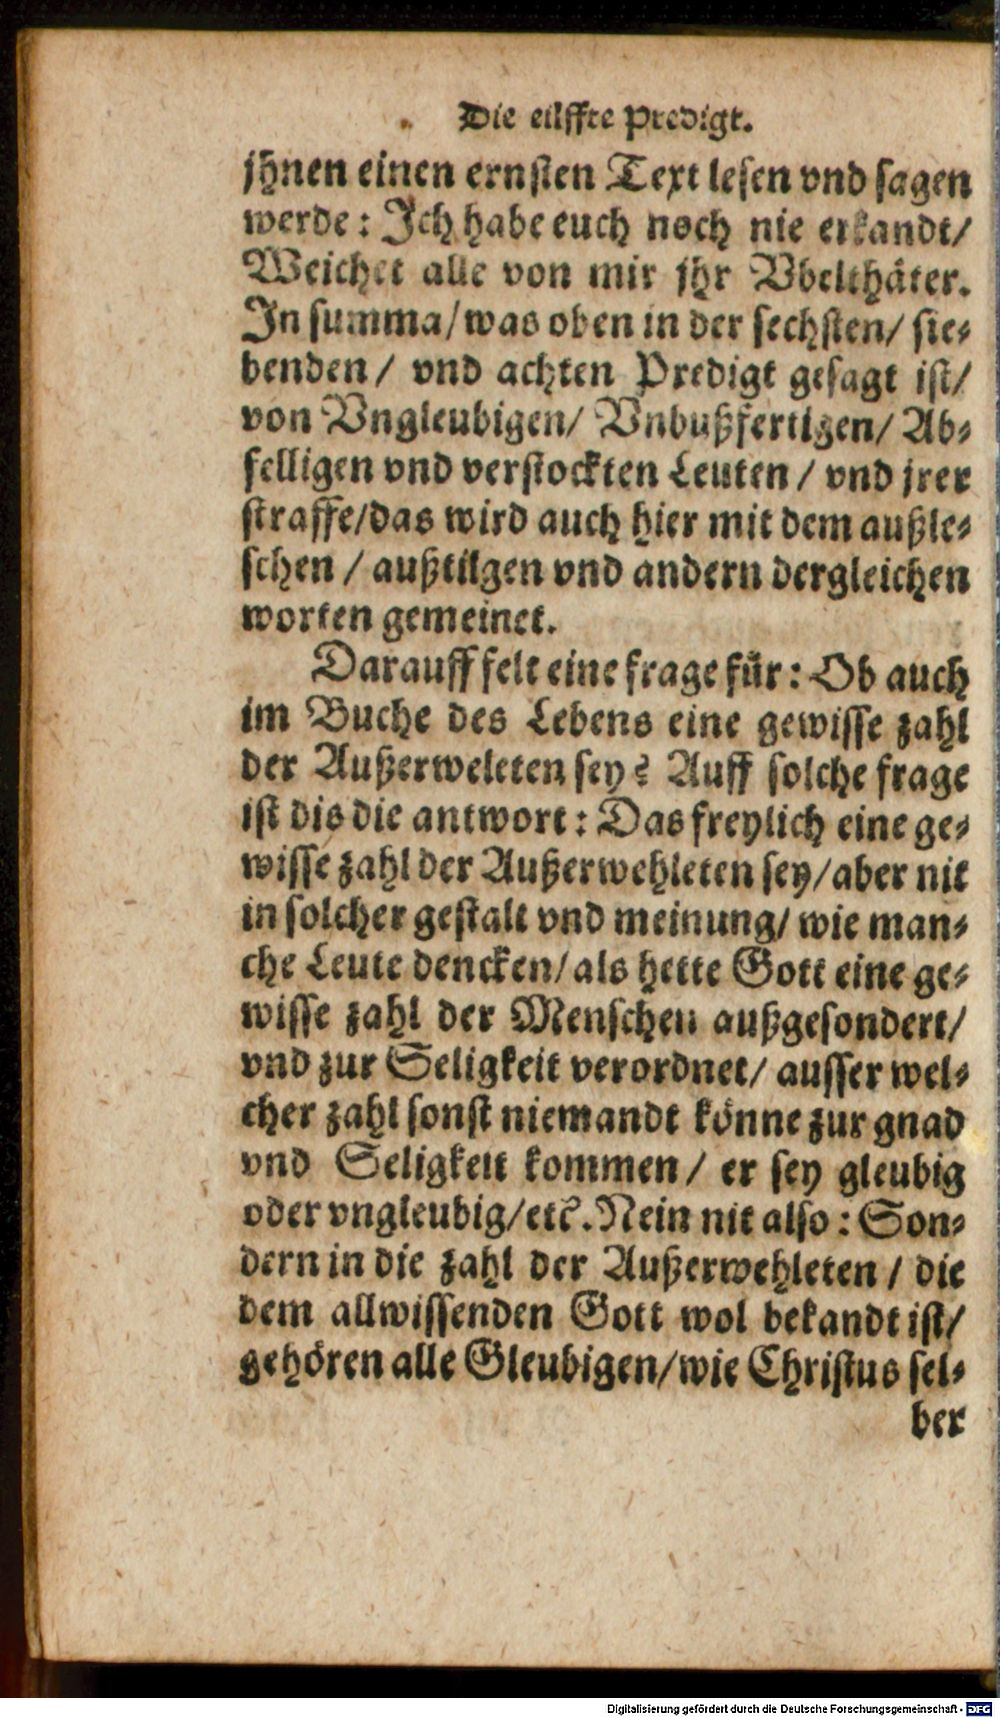 Die eilffte Predigt.
jhnen einen ernsten Text lesen vnd sagen
werde: Ich habe euch noch nie erkandt/
Weichet alle von mir jhr Vbelthäter.
In summa/was oben in der sechsten/ sie-
benden/ vnd achten Predigt gesagt ist/
von Vngleubigen/ Vnbußfertigen/ Ab-
felligen vnd verstockten Leuten/ vnd jrer
straffe/das wird auch hier mit dem außle-
schen/ außtilgen vnd andern dergleichen
worten gemeinet.
Darauff felt eine frage für: Ob auch
im Buche des Lebens eine gewisse zahl
der Außerweleten sey? Auff solche frage
ist dis die antwort: Das freylich eine ge-
wisse zahl der Außerwehleten sey/aber nit
in solcher gestalt vnd meinung/ wie man-
che Leute dencken/als hette Gott eine ge-
wisse zahl der Menschen außgesondert/
vnd zur Seligkeit verordnet/ ausser wel-
cher zahl sonst niemandt könne zur gnad
vnd Seligkeit kommen/ er sey gleubig
oder vngleubig/etc. Nein nit also: Son-
dern in die zahl der Außerwehleten/ die
dem allwissenden Gott wol bekandt ist/
gehören alle Gleubigen/wie Christus sel-
ber
Digitalisierung gefördert durch die Deutsche Forschungsgemeinschaft - DFG